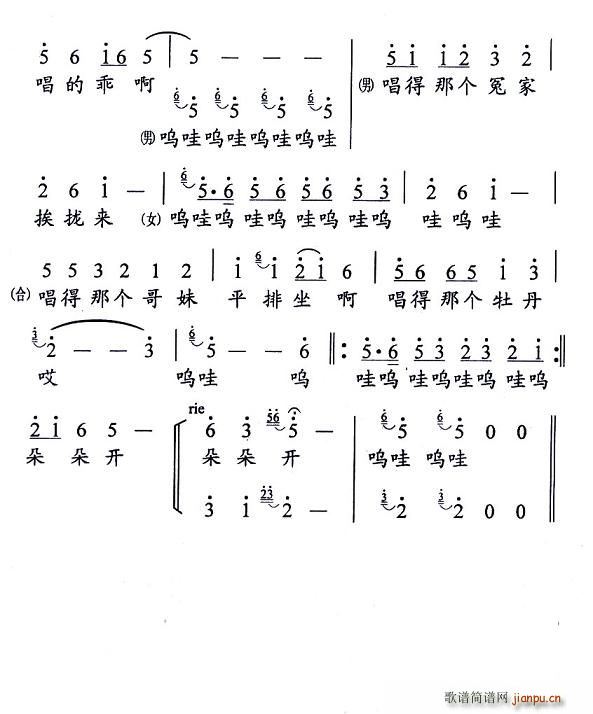 5 6 i6 5 | 5 — — — | 5i i2 3 2
唱的乖啊 (男)唱得那个冤家
6 5 6 5 6 5 6 5
(男)呜哇呜哇呜哇呜哇
2 6 i — | 6 5·6 56 56 53 | 2 6 i — |
挨拢来 (女)呜哇呜 哇呜哇呜哇呜 哇呜哇
5 5 3 2 1 2 | i 6 i 2i 6 | 56 65 i 3 |
(合)唱得那个哥妹 平排坐啊 唱得那个牡丹
3 2 — — 3 | 6 5 — — 6 |: 5·6 53 23 2i :|
哎 呜哇 呜 哇呜 哇呜哇呜 哇呜
2i 6 5 — | rie 6 3 56 5 — | 6 5 6 5 0 0
朵朵开 朵朵开 呜哇 呜哇
3 i 23 2 — | 3 2 3 2 0 0
歌谱简谱网 jianpu.cn